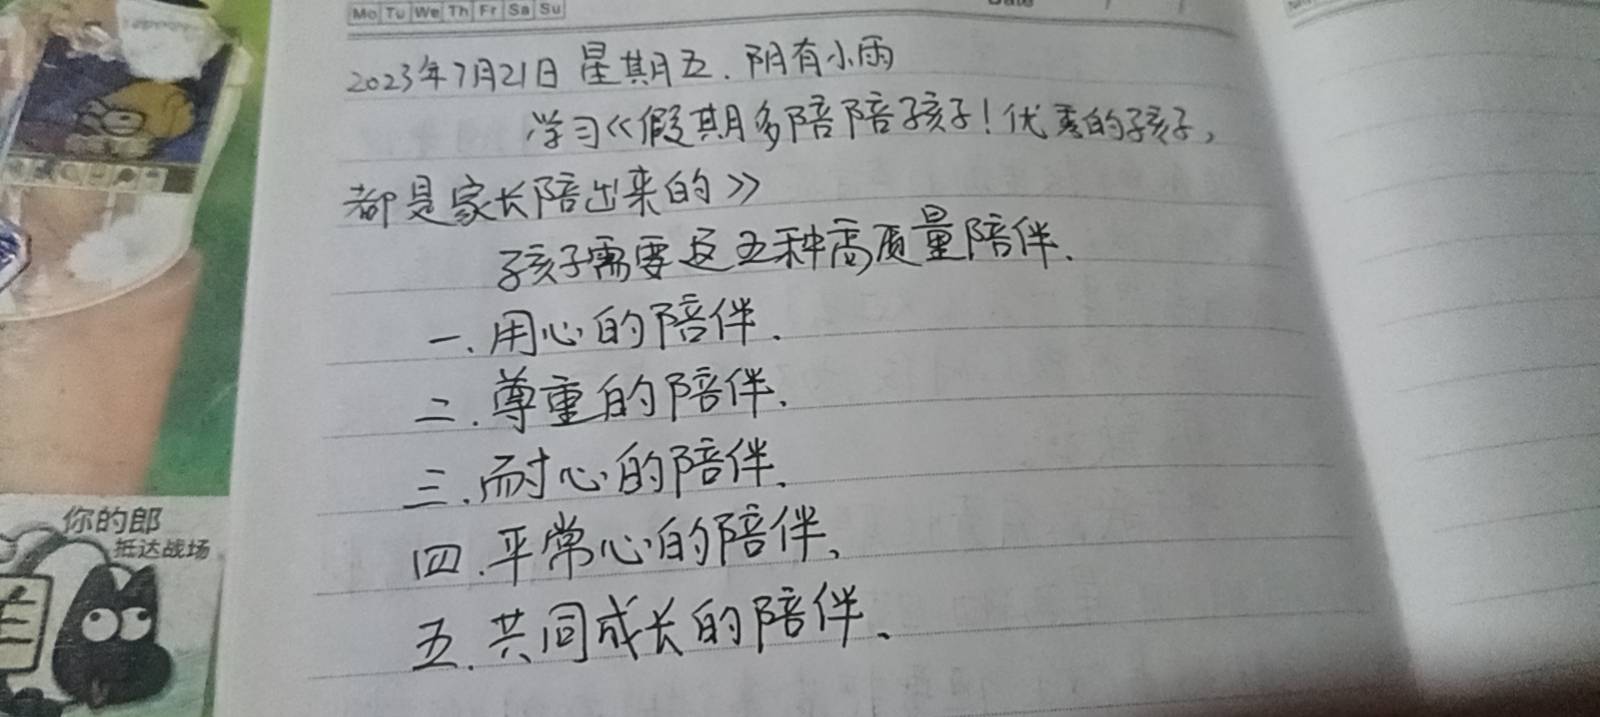 Mo Tu We Th Fr Sa Su
Date
2023年7月21日 星期五. 阴有小雨
学习《假期多陪陪孩子！优秀的孩子，
都是家长陪出来的》
孩子需要这五种高质量陪伴.
一.用心的陪伴.
二.尊重的陪伴.
三.耐心的陪伴.
四.平常心的陪伴、
五.共同成长的陪伴、
你的郎
抵达战场